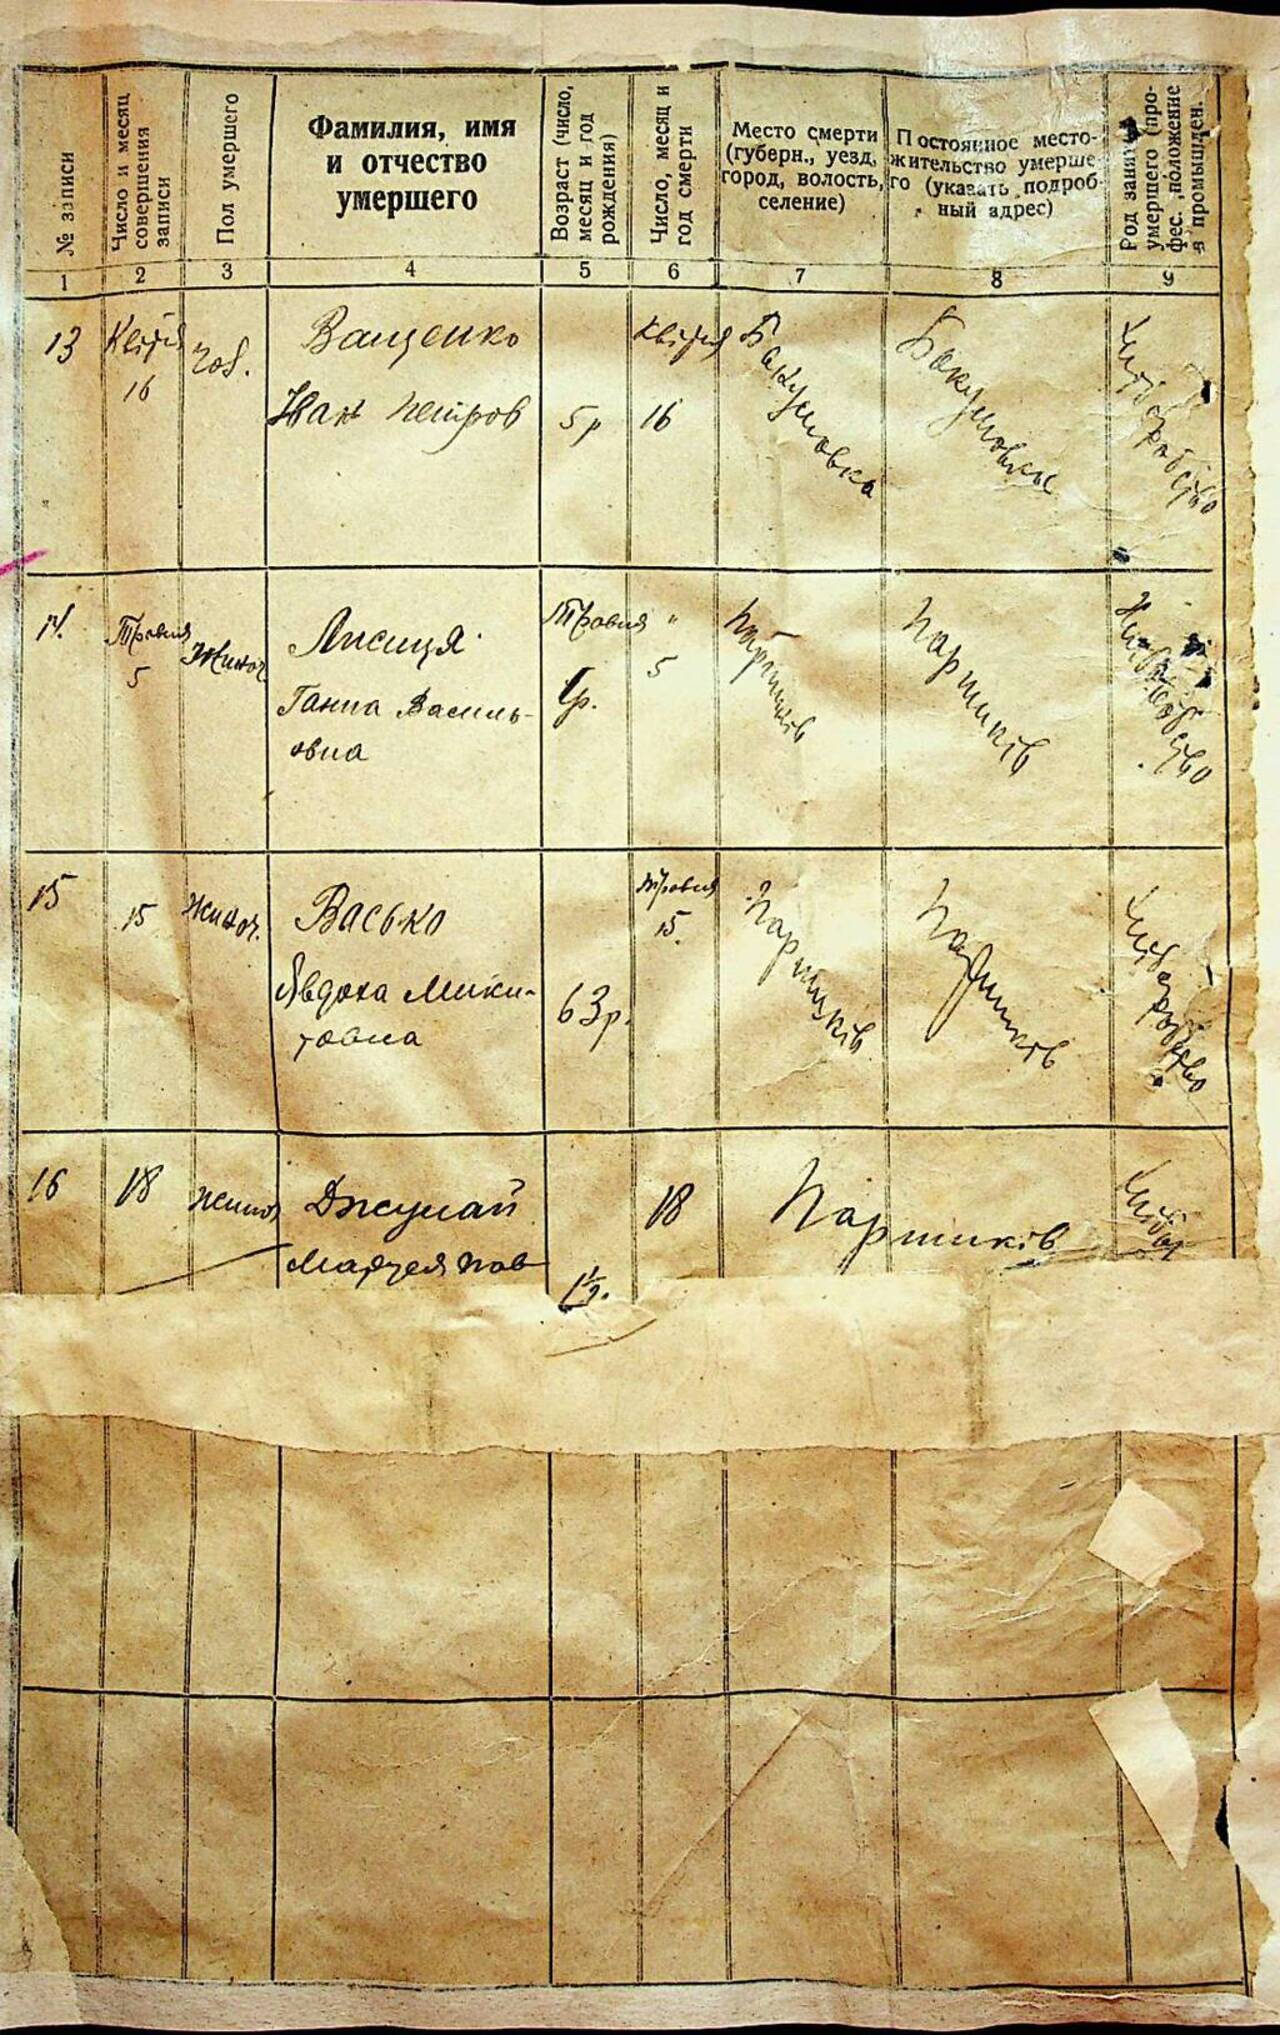 № записи
Число и месяц
совершения
записи
Пол умершего
Фамилия, имя
и отчество
умершего
Возраст (число,
месяц и год
рождения)
Число, месяц и
год смерти
Место смерти
(губерн., уезд,
город, волость,
селение)
Постоянное место-
жительство умерше-
го (указать подроб-
ный адрес)
Род занят
умершего (про-
фес. положение
в промышлен.
1 2 3 4 5 6 7 8 9
13
Квітня
16
Чов.
Ващенко
Иван Петров
5р
Квітня
16
Бакумовка
Бакумовка
Хліборобство
14.
Травня
5
Жіноч
Лисиця
Ганна Василь-
овна
Травня "
5
р.
Паришків
Паришків
15
15
Жіноч.
Васько
Явдоха Мики-
товна
63р.
Травня
15.
Паришків
Паришків
Хліборобство
16
18
Жіноч
Джулай
Пав
1½.
18
Паришків
Хлібор